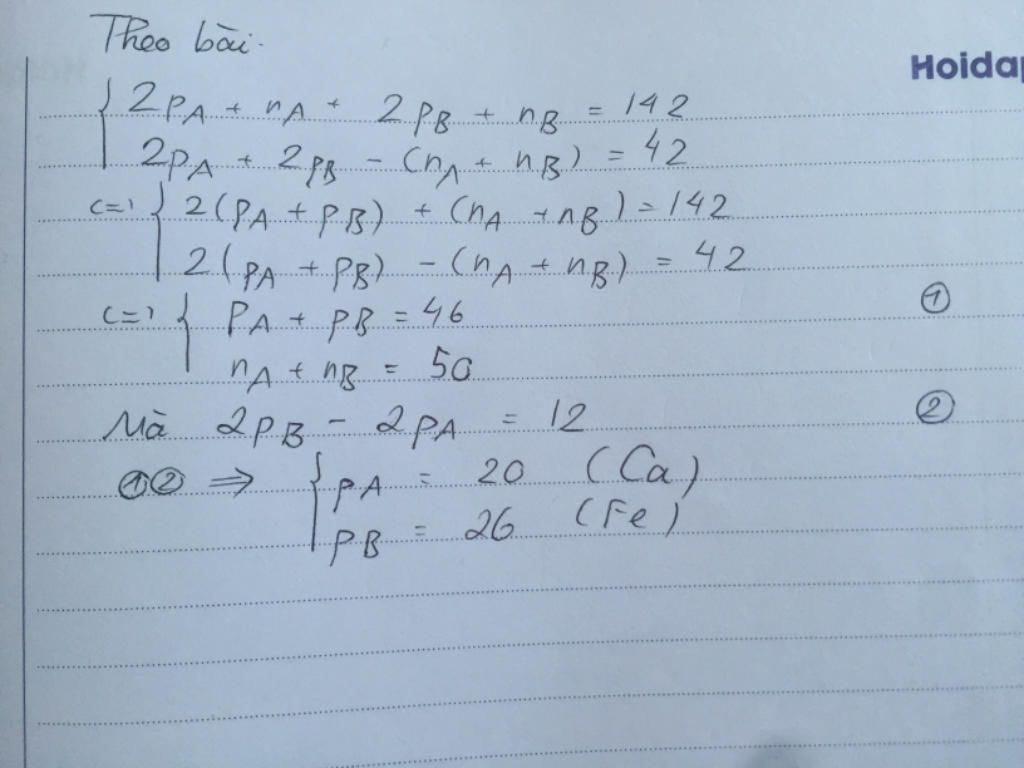 Theo bài.
Hoidap
{ 2pA + nA + 2pB + nB = 142
2pA + 2pB - (nA + nB) = 42
<=> { 2(pA + pB) + (nA + nB) = 142
2(pA + pB) - (nA + nB) = 42
<=> { pA + pB = 46 ①
nA + nB = 50
Mà 2pB - 2pA = 12 ②
①② => { pA = 20 (Ca)
pB = 26 (Fe)